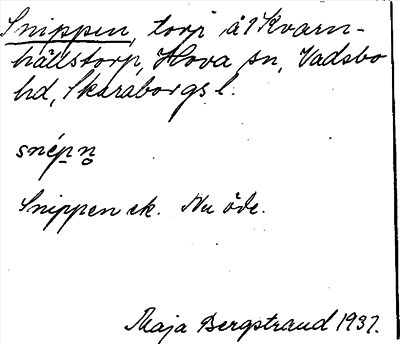 Snippen, torp å Kvarn-
hällstorp, Hova sn, Vadsbo
hd, Skaraborgs l.
snép n̥
Snippen ek. Nu öde.
Maja Bergstrand 1937.